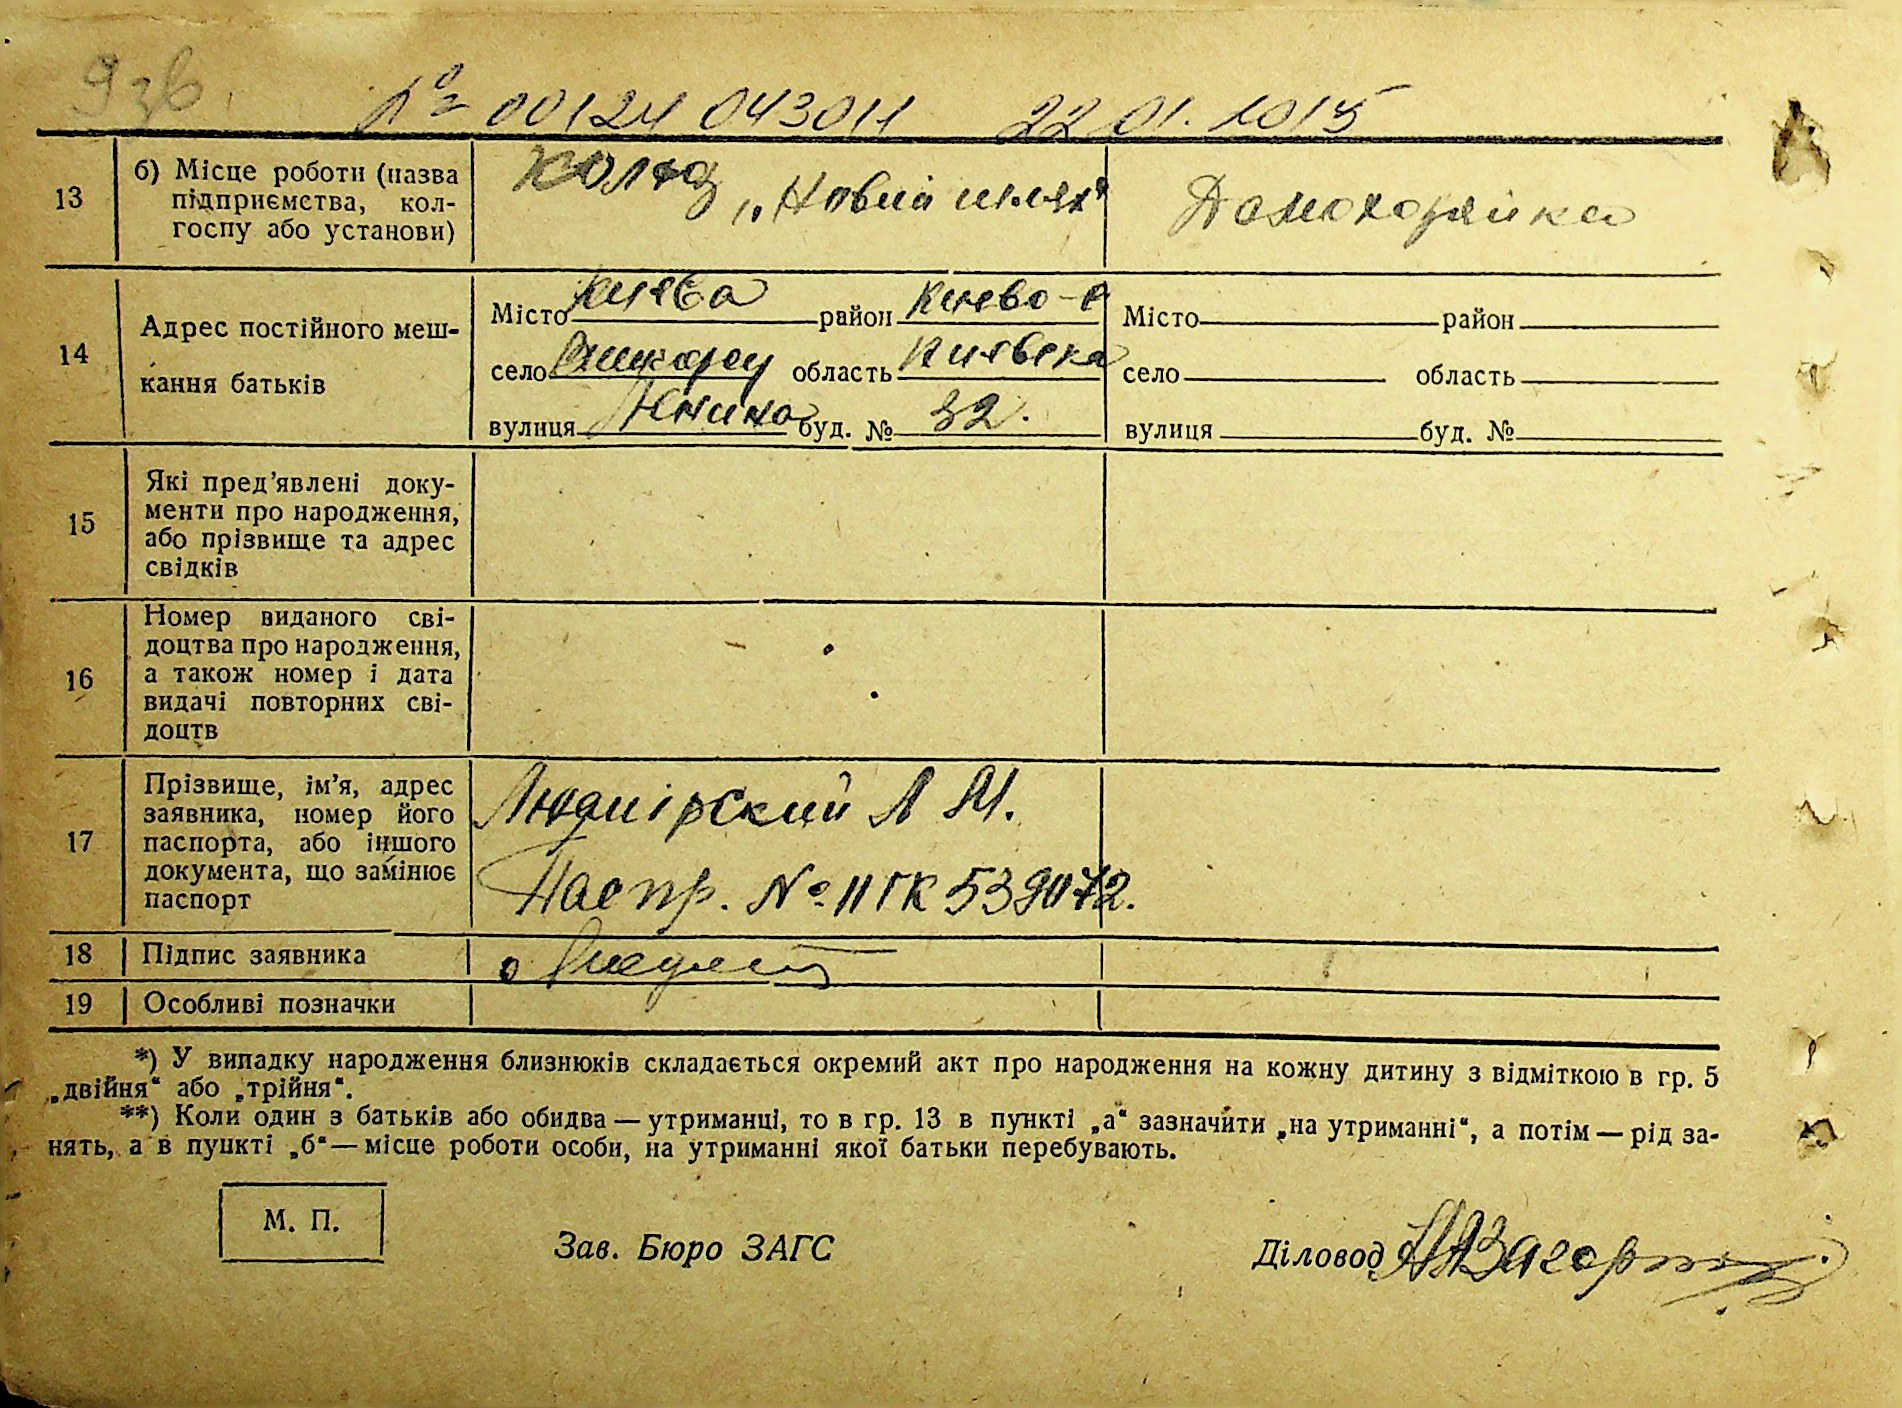 № 00124 043011 22 01. 1015
13
б) Місце роботи (назва
підприємства, кол-
госпу або установи)
„Новий шлях“
Домохозяйка
14
Адрес постійного меш-
кання батьків
Місто район Києво-С
село область Київська
вулиця Леніна буд. № 32.
Місто район
село область
вулиця буд. №
15
Які пред’явлені доку-
менти про народження,
або прізвище та адрес
свідків
16
Номер виданого сві-
доцтва про народження,
а також номер і дата
видачі повторних сві-
доцтв
17
Прізвище, ім’я, адрес
заявника, номер його
паспорта, або іншого
документа, що замінює
паспорт
Людмірский Л М.
Паспр. № II ГК 539072.
18 Підпис заявника
19 Особливі позначки
*) У випадку народження близнюків складається окремий акт про народження на кожну дитину з відміткою в гр. 5
„двійня“ або „трійня“.
**) Коли один з батьків або обидва — утриманці, то в гр. 13 в пункті „а“ зазначити „на утриманні“, а потім — рід за-
нять, а в пункті „б“ — місце роботи особи, на утриманні якої батьки перебувають.
М. П.
Зав. Бюро ЗАГС
Діловод